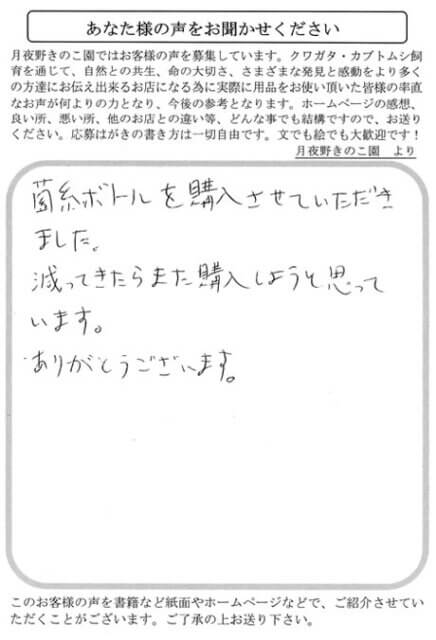 あなた様の声をお聞かせください
月夜野きのこ園ではお客様の声を募集しています。クワガタ・カブトムシ飼
育を通じて、自然との共生、命の大切さ、さまざまな発見と感動をより多く
の方達にお伝え出来るお店になる為に実際に用品をお使い頂いた皆様の率直
なお声が何よりの力となり、今後の参考となります。ホームページの感想、
良い所、悪い所、他のお店との違い等、どんな事でも結構ですので、お送り
ください。応募はがきの書き方は一切自由です。文でも絵でも大歓迎です！
月夜野きのこ園　より
菌糸ボトルを購入させていただき
ました。
減ってきたらまた購入しようと思って
います。
ありがとうございます。
このお客様の声を書籍など紙面やホームページなどで、ご紹介させてい
ただくことがございます。ご了承の上お送り下さい。